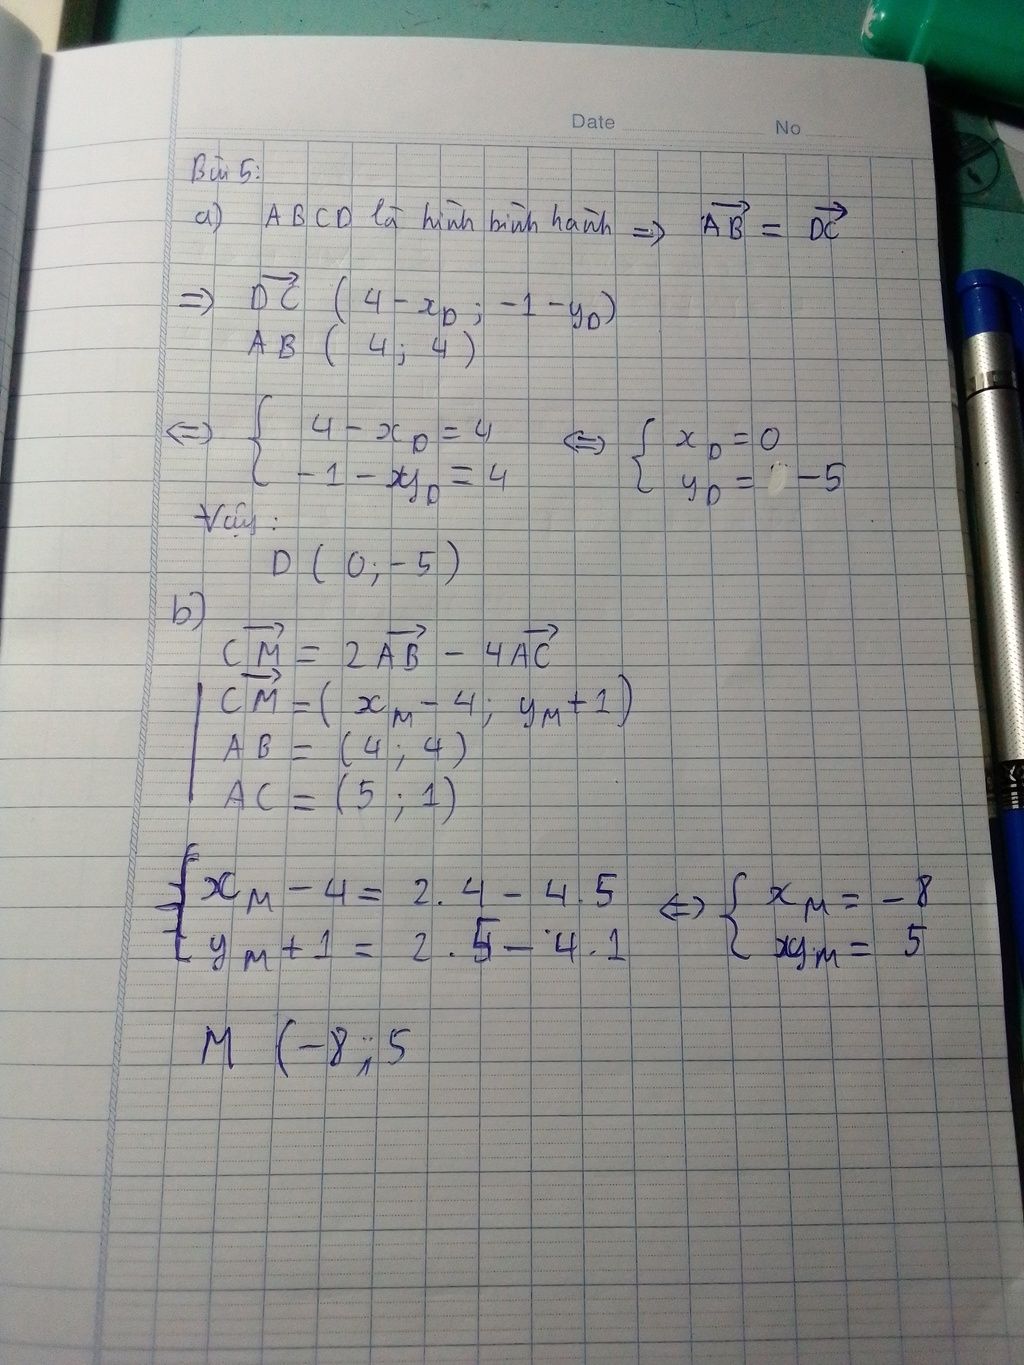 Date No
Bài 5:
a) ABCD là hình bình hành => AB→ = DC→
=> DC→ ( 4 - x_D ; -1 - y_D )
AB ( 4 ; 4 )
<=> { 4 - x_D = 4 <=> { x_D = 0
-1 - y_D = 4 y_D = -5
Vậy :
D ( 0 ; -5 )
b)
CM→ = 2AB→ - 4AC→
CM→ = ( x_M - 4 ; y_M + 1 )
AB = ( 4 ; 4 )
AC = ( 5 ; 1 )
{ x_M - 4 = 2 . 4 - 4 . 5 <=> { x_M = -8
y_M + 1 = 2 . - 4 . 1 y_M = 5
M ( -8 ; 5